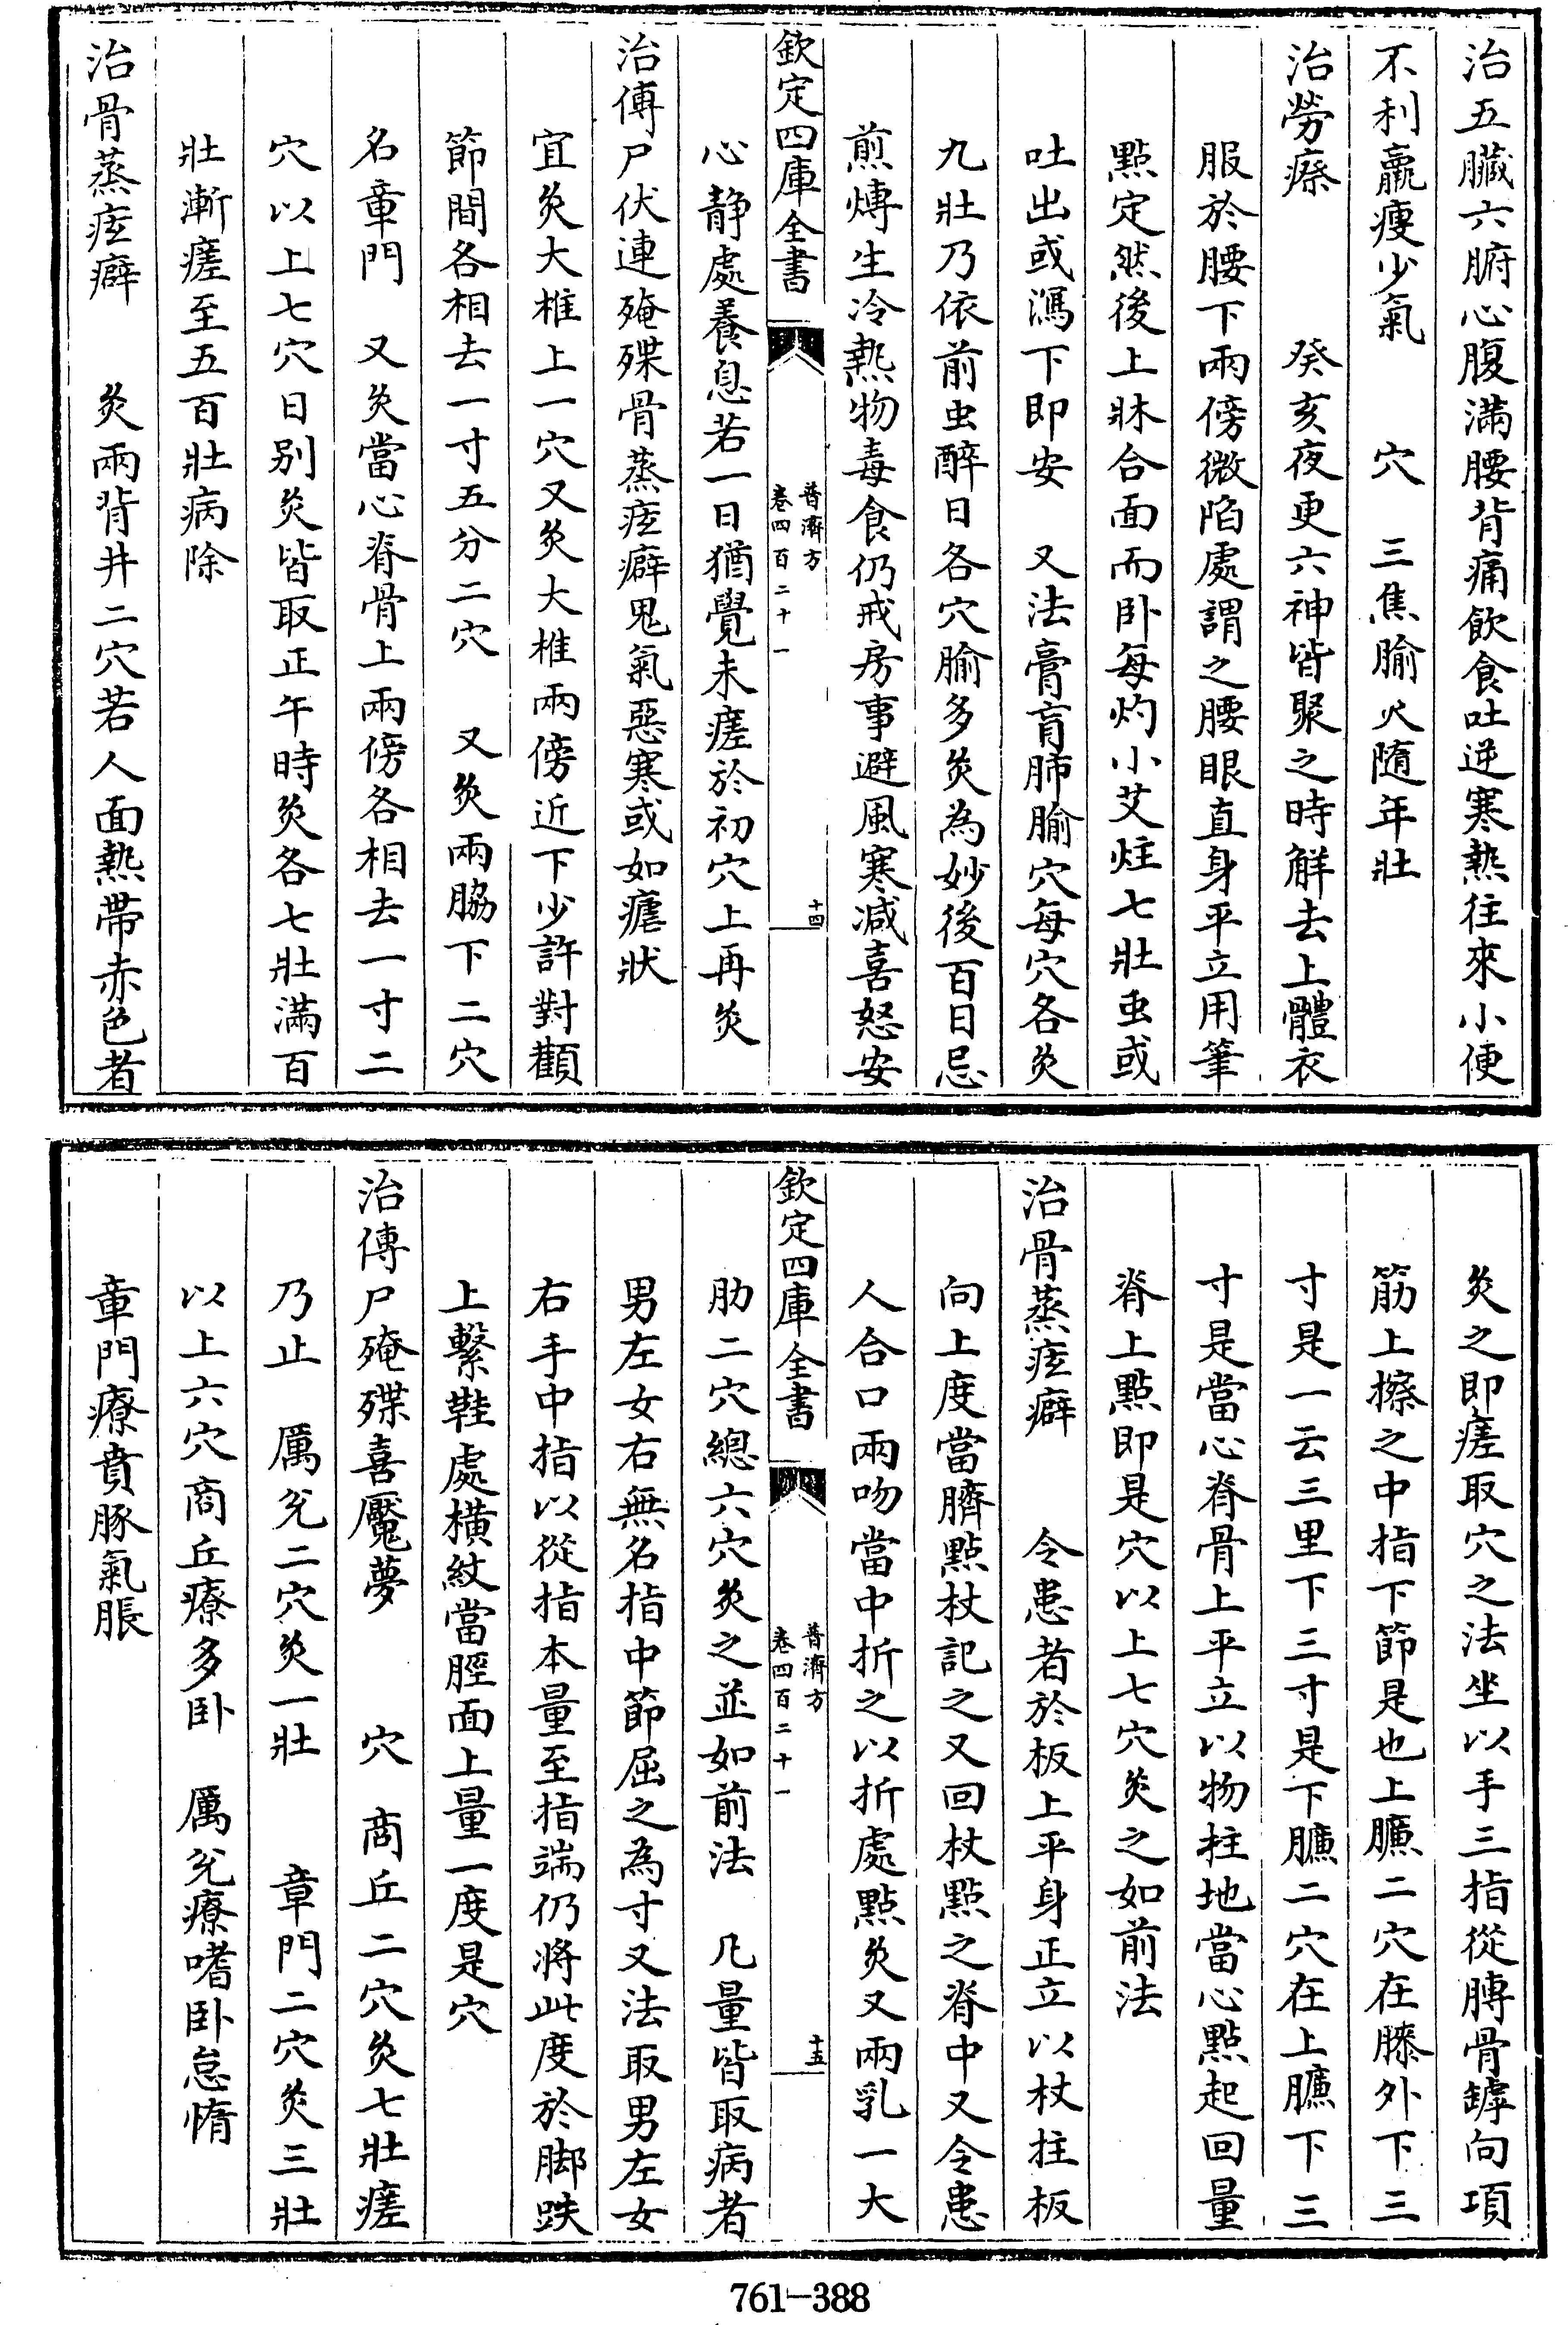 治五臟六腑心腹滿腰背痛飲食吐逆寒熱往來小便
不利羸瘦少氣　穴　三焦腧火随年壯
治勞瘵　癸亥夜更六神皆聚之時解去上體衣
服於腰下兩傍微陷處謂之腰眼直身平立用筆
點定然後上牀合面而卧每灼小艾炷七壯虫或
吐出或瀉下即安　又法膏肓肺腧穴每穴各灸
九壯乃依前虫醉日各穴腧多灸為妙後百日忌
煎煿生冷熱物毒食仍戒房事避風寒减喜怒安
欽定四庫全書
普濟方
卷四百二十一
十四
心静處養息若一日猶覺未瘥於初穴上再灸
治傳尸伏連殗殜骨蒸痃癖鬼氣惡寒或如瘧狀
宜灸大椎上一穴又灸大椎兩傍近下少許對顴
節間各相去一寸五分二穴　又灸兩脇下二穴
名章門　又灸當心脊骨上兩傍各相去一寸二
穴以上七穴日别灸皆取正午時灸各七壯滿百
壯漸瘥至五百壯病除
治骨蒸痃癖　灸兩背井二穴若人面熱帶赤色者
灸之即瘥取穴之法坐以手三指從膊骨罅向項
筋上擦之中指下節是也上臁二穴在膝外下三
寸是一云三里下三寸是下臁二穴在上臁下三
寸是當心脊骨上平立以物柱地當心點起回量
脊上點即是穴以上七穴灸之如前法
治骨蒸痃癖　令患者於板上平身正立以杖柱板
向上度當臍點杖記之又回杖點之脊中又令患
人合口兩吻當中折之以折處點灸又兩乳一大
欽定四庫全書
普濟方
卷四百二十一
十五
肋二穴總六穴灸之並如前法　凡量皆取病者
男左女右無名指中節屈之為寸又法取男左女
右手中指以從指本量至指端仍將此度於脚趺
上繫鞋處横紋當脛面上量一度是穴
治傳尸殗殜喜魘夢　穴　商丘二穴灸七壯瘥
乃止　厲兊二穴灸一壯　章門二穴灸三壯
以上六穴商丘療多卧　厲兊療嗜卧怠惰
章門療賁豚氣脹
761-388